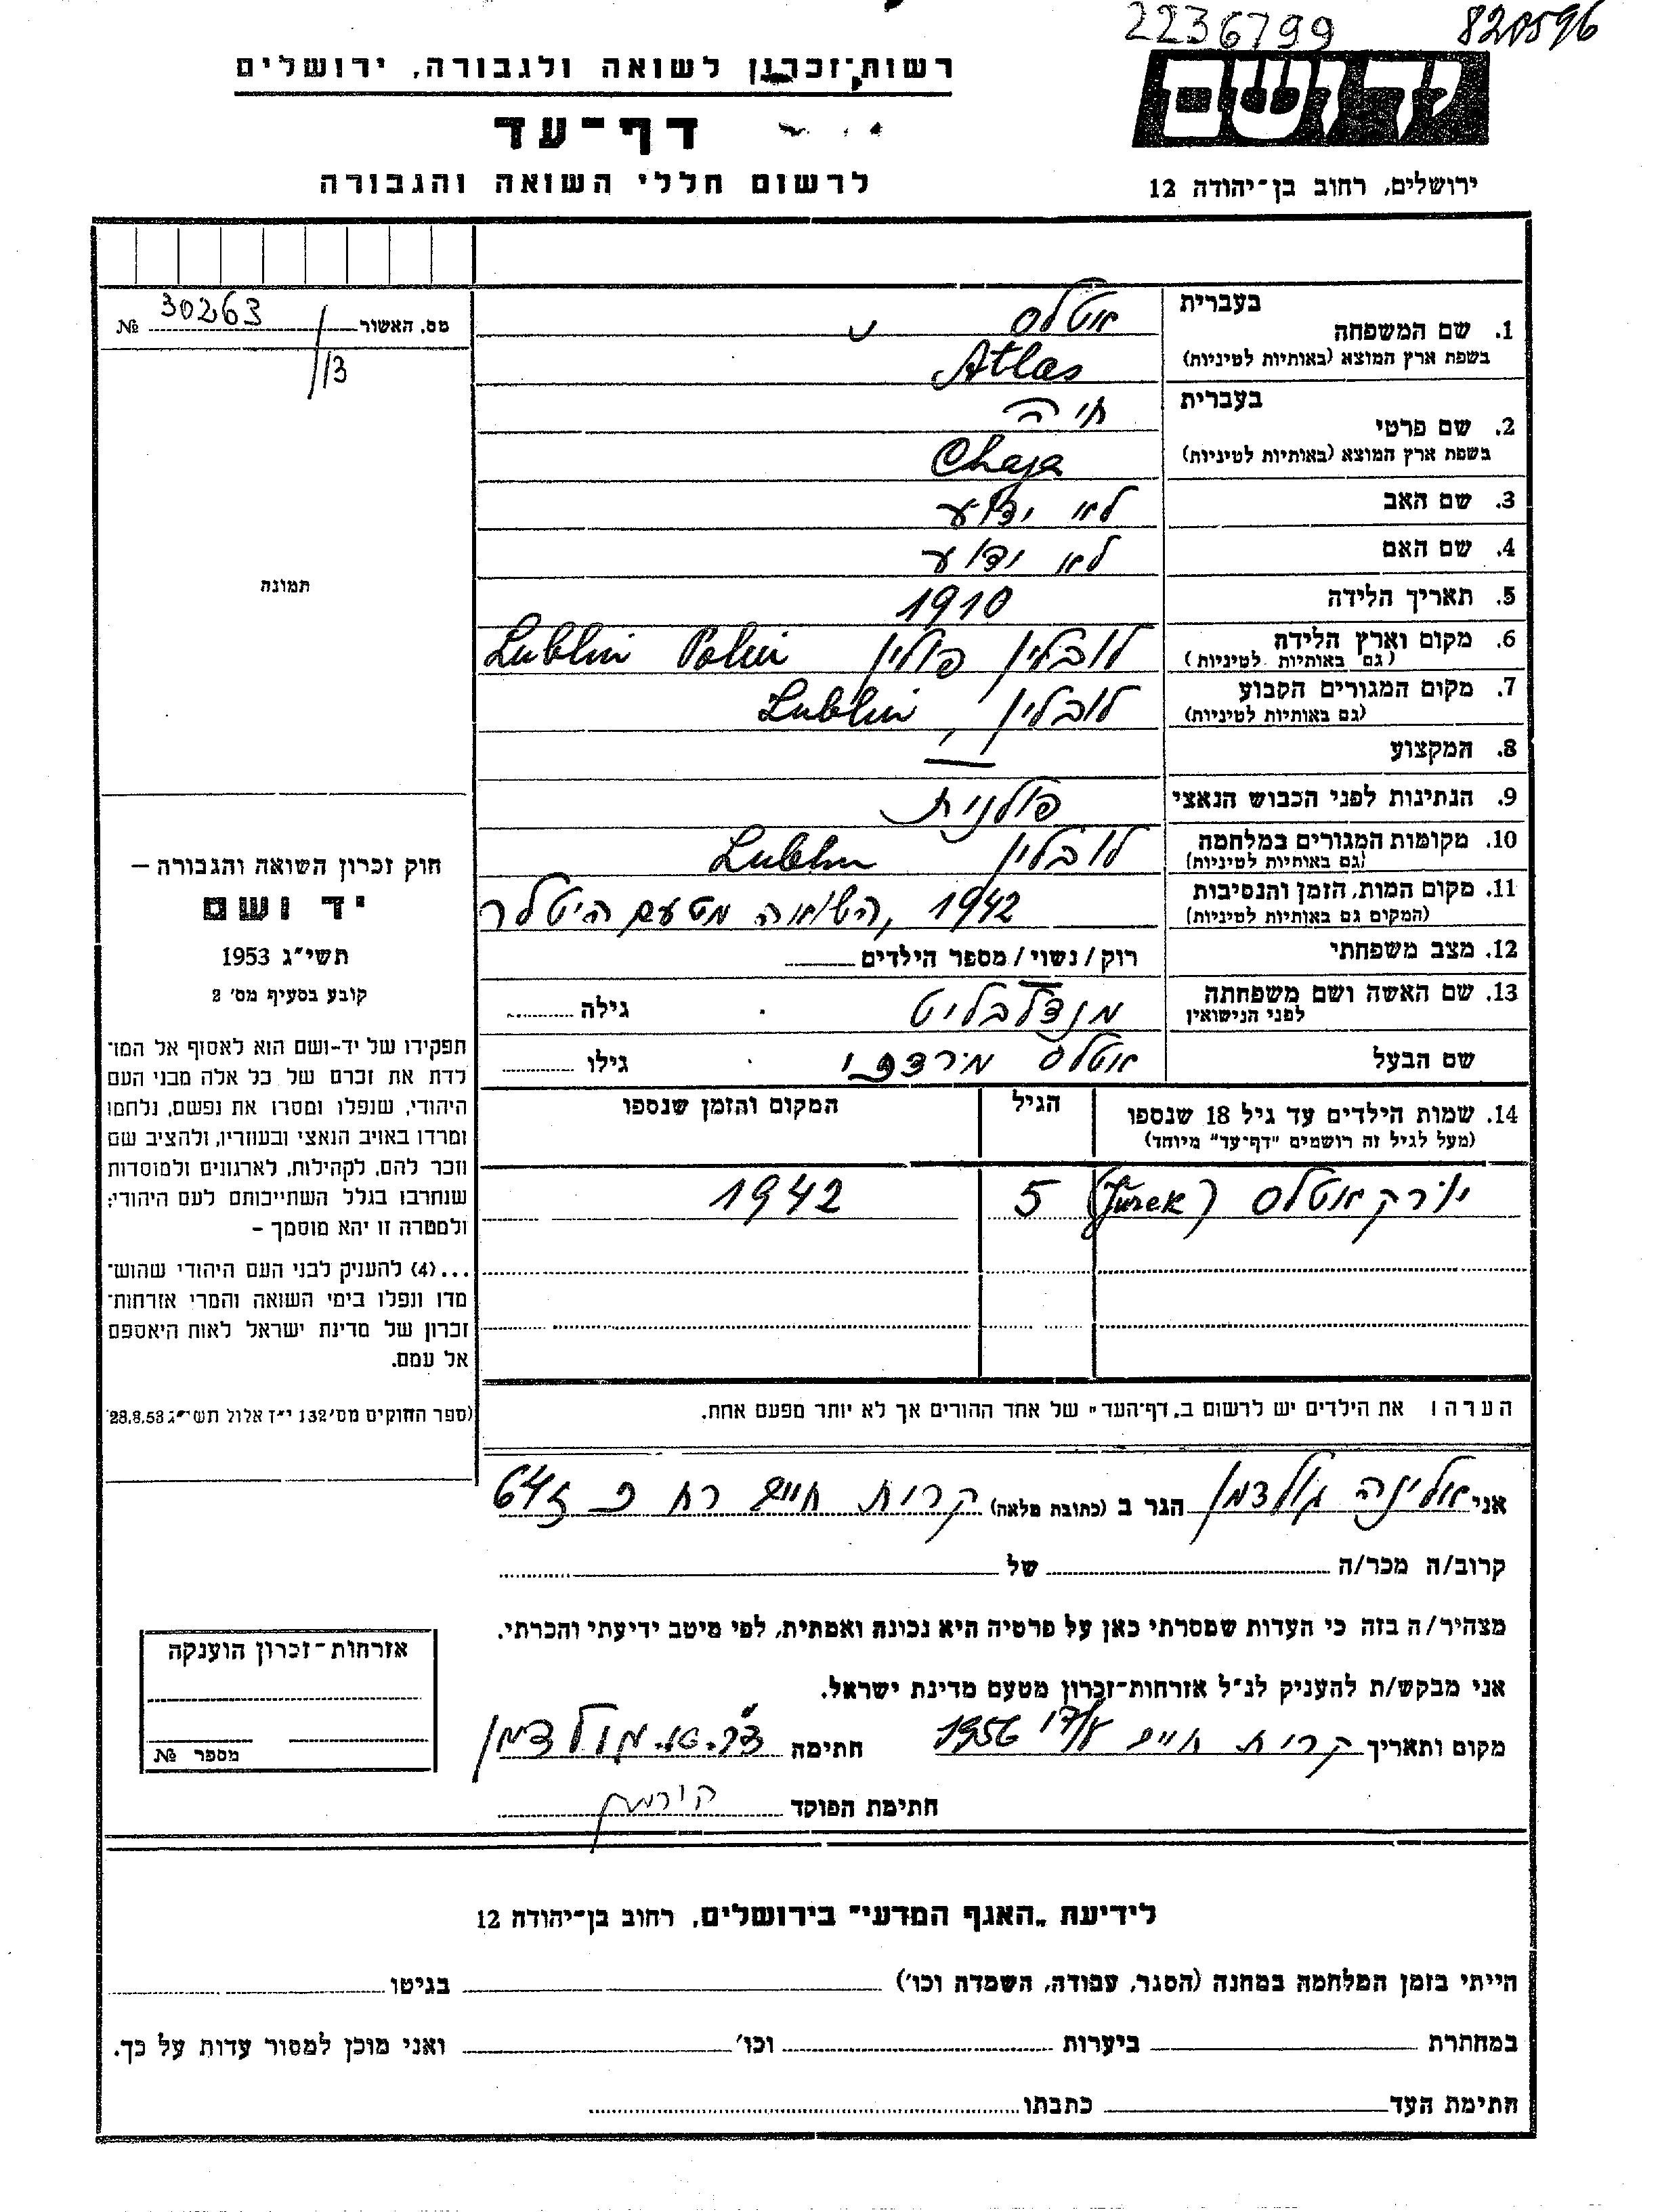 2236799 820596
רשות־זכרון לשואה ולגבורה, ירושלים
יד ושם
דף־עד
לרשום חללי השואה והגבורה
ירושלים, רחוב בן־יהודה 12
מס. האשור 30263 №
/13
תמונה
חוק זכרון השואה והגבורה –
יד ושם
תשי״ג 1953
קובע בסעיף מס׳ 2
תפקידו של יד-ושם הוא לאסוף אל המו־
לדת את זכרם של כל אלה מבני העם
היהודי, שנפלו ומסרו את נפשם, נלחמו
ומרדו באויב הנאצי ובעוזריו, ולהציב שם
וזכר להם, לקהילות, לארגונים ולמוסדות
שנחרבו בגלל השתייכותם לעם היהודי;
ולמטרה זו יהא מוסמך –
...(4) להעניק לבני העם היהודי שהוש־
מדו ונפלו בימי השואה והמרי אזרחות־
זכרון של מדינת ישראל לאות היאספם
אל עמם.
(ספר החוקים מס׳ 132 י״ז אלול תשי״ג 28.8.53)
בעברית אטלס
1. שם המשפחה
בשפת ארץ המוצא (באותיות לטיניות) Atlas
בעברית חיה
2. שם פרטי
בשפת ארץ המוצא (באותיות לטיניות) Chaja
3. שם האב לא ידוע
4. שם האם לא ידוע
5. תאריך הלידה 1910
6. מקום וארץ הלידה לובלין פולין Lublin Polin
(גם באותיות לטיניות)
7. מקום המגורים הקבוע לובלין Lublin
(גם באותיות לטיניות)
8. המקצוע —
9. הנתינות לפני הכבוש הנאצי פולנית
10. מקומות המגורים במלחמה לובלין Lublin
(גם באותיות לטיניות)
11. מקום המות, הזמן והנסיבות 1942, השואה מטעם היטלר
(המקום גם באותיות לטיניות)
12. מצב משפחתי רוק / נשוי / מספר הילדים
13. שם האשה ושם משפחתה מנדלבליט גילה
לפני הנישואין
שם הבעל אטלס מרדכי גילו
14. שמות הילדים עד גיל 18 שנספו הגיל המקום והזמן שנספו
(מעל לגיל זה רושמים "דף־עד" מיוחד)
יורק אטלס (Jurek) 5 1942
הערה ו את הילדים יש לרשום ב„דף־העד" של אחד ההורים אך לא יותר מפעם אחת.
אני אלינה גולדמן הגר ב (כתובת מלאה) קרית חיים רח פ 64
קרוב/ה מכר/ה של
מצהיר/ה בזה כי העדות שמסרתי כאן על פרטיה היא נכונה ואמתית, לפי מיטב ידיעתי והכרתי.
אני מבקש/ת להעניק לנ״ל אזרחות־זכרון מטעם מדינת ישראל.
מקום ותאריך קרית חיים 1956 חתימה דר. א. גולדמן
חתימת הפוקד
אזרחות־זכרון הוענקה
מספר №
לידיעת „האגף המדעי" בירושלים, רחוב בן־יהודה 12
הייתי בזמן המלחמה במחנה (הסגר, עבודה, השמדה וכו׳) בגיטו
במחתרת ביערות וכו׳ ואני מוכן למסור עדות על כך.
חתימת העד כתבתו